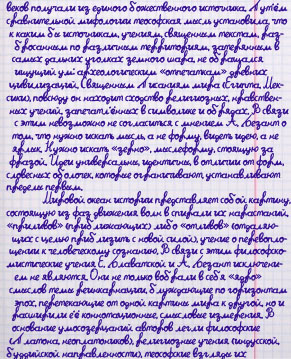 веков получали из единого божественного источника. А путём
сравнительной мифологии теософская мысль установила, что
к каким бы источникам, учениям, священным текстам, раз-
бросанным по различным территориям, затерянным в
самых дальних уголках земного шара, не обращался
ищущий ум: археологическим «отпечаткам» древних
цивилизаций, Священным Писаниям мира (Египта, Мек-
сики), повсюду он находит сходство религиозных, нравствен-
ных учений, запечатлённых в символике и обрядах. В связи
с этим невозможно не согласиться с мнением А. Безант о
том, что нужно искать мысль, а не форму, видеть идею, а не
ярлык. Нужно искать «зерно», мыслеформу, стоящую за
фразой. Идеи универсальны, идентичны, в отличии от форм,
словесных оболочек, которые ограничивают, устанавливают
пределы первым.
Мировой океан истории представляет собой картину,
состоящую из фаз движения волн в спирали их нарастаний,
«приливов» (приближающих) либо «отливов» (отдаляю-
щих с целью приблизить с новой силой), учение о перевопло-
щении к человеческому сознанию. В связи с этим философско-
мистические учения Е. Блаватской и А. Безант исключени-
ем не являются. Они не только вобрали в себя «ядро»
смыслов темы реинкарнации, блуждающие по горизонтам
эпох, перетекающие от одной картины мира к другой, но и
расширили её коннотационные, смысловые измерения. В
основание умосозерцаний авторов легли философские
(Платона, неоплатоников), религиозные учения (индуской,
буддийской направленности), теософские взгляды их